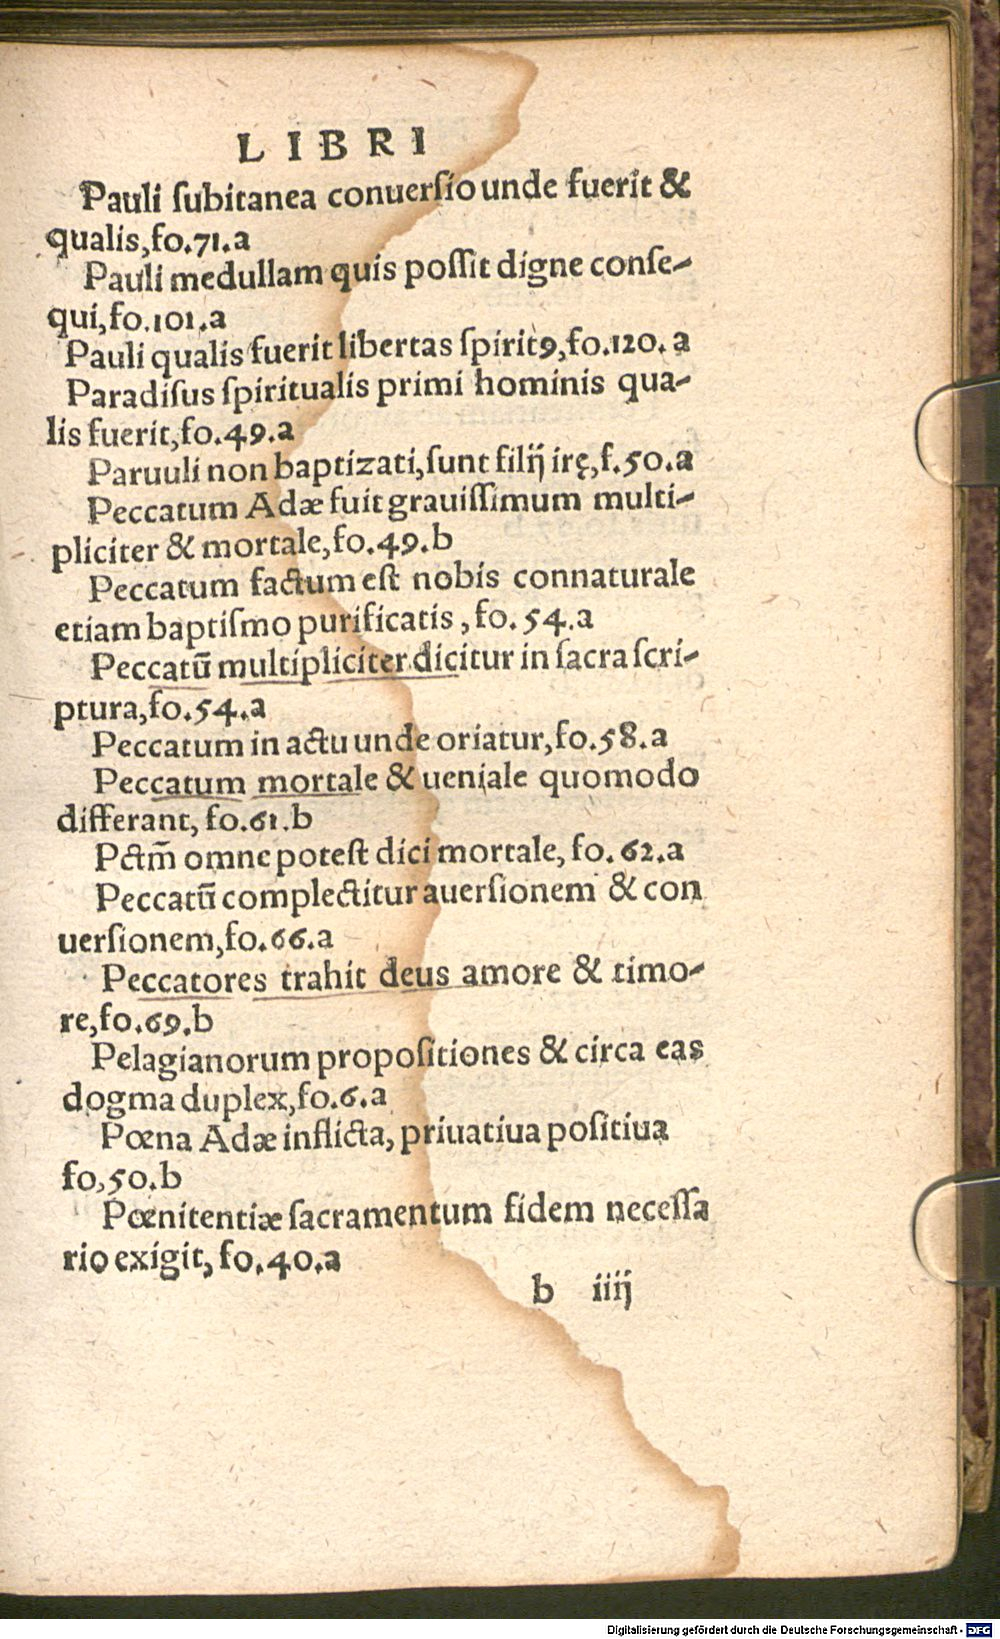 LIBRI
Pauli ſubitanea conuerſio unde fuerit &
qualis,fo.71.a
Pauli medullam quis poſſit digne conſe-
qui,fo.101.a
Pauli qualis fuerit libertas ſpiritꝰ,fo.120.a
Paradiſus ſpiritualis primi hominis qua-
lis fuerit,fo.49.a
Paruuli non baptizati,ſunt filij irę,f.50.a
Peccatum Adæ fuit grauiſſimum multi-
pliciter & mortale,fo.49.b
Peccatum factum eſt nobis connaturale
etiam baptiſmo purificatis,fo.54.a
Peccatū multipliciter dicitur in ſacra ſcri-
ptura,fo.54.a
Peccatum in actu unde oriatur,fo.58.a
Peccatum mortale & ueniale quomodo
differant, fo.61.b
Pctm̄ omne poteſt dici mortale, fo.62.a
Peccatū complectitur auerſionem & con
uerſionem,fo.66.a
Peccatores trahit deus amore & timo-
re,fo.69.b
Pelagianorum propoſitiones & circa eas
dogma duplex,fo.6.a
Pœna Adæ inflicta, priuatiua poſitiua
fo,50.b
Pœnitentiæ ſacramentum fidem neceſſa
rio exigit, fo.40.a
b iiij
Digitalisierung gefördert durch die Deutsche Forschungsgemeinschaft - DFG